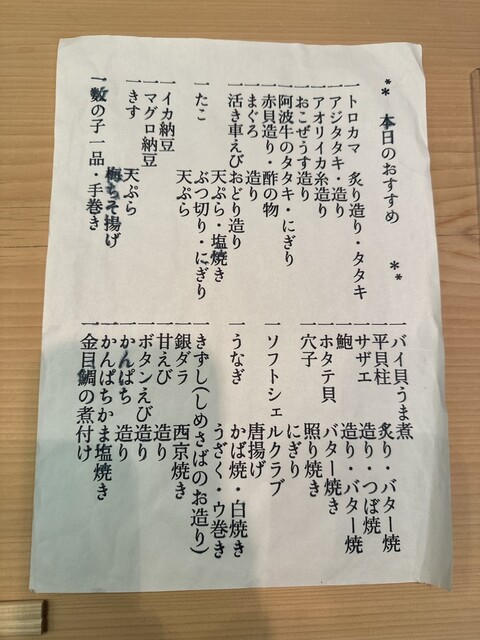 ** 本日のおすすめ **
一トロカマ 炙り造り・タタキ
一アジタタキ・造り
一アオリイカ糸造り
一おこぜうす造り
一阿波牛のタタキ・にぎり
一赤貝造り・酢の物
一まぐろ 造り
一活き車えび おどり造り
天ぷら・塩焼き
一たこ ぶつ切り・にぎり
天ぷら
一イカ納豆
一マグロ納豆
一きす 天ぷら
梅ちそ揚げ
一数の子一品・手巻き
一バイ貝うま煮
一平貝柱 炙り・バター焼
一サザエ 造り・つぼ焼
一鮑 造り・バター焼
一ホタテ貝 バター焼き
一穴子 照り焼き
にぎり
一ソフトシェルクラブ
唐揚げ
一うなぎ かば焼・白焼き
うざく・ウ巻き
きずし(しめさばのお造り)
一銀ダラ 西京焼き
一甘えび 造り
一ボタンえび造り
一かんぱち 造り
一かんぱちかま塩焼き
一金目鯛の煮付け